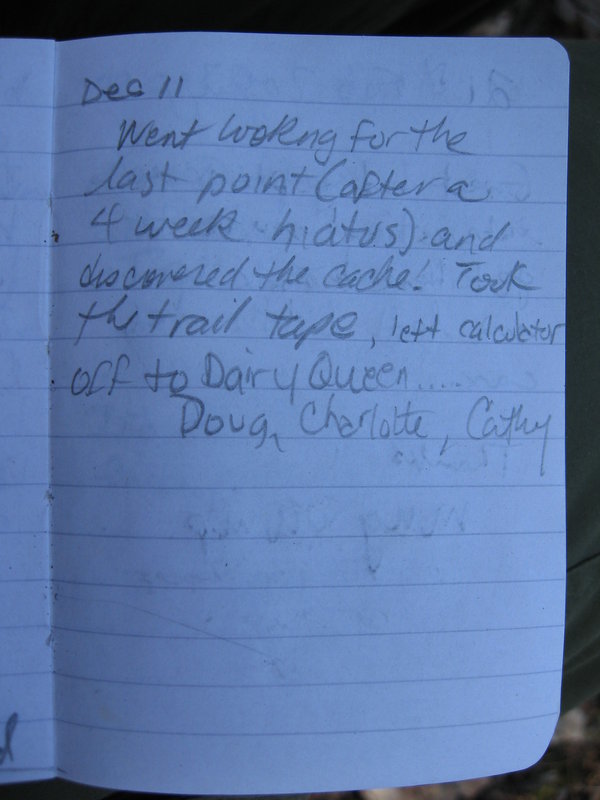 Dec 11
Went looking for the
last point (after a
4 week hiatus) and
discovered the cache! Took
the trail tape, left calculator
off to Dairy Queen.....
Doug, Charlotte, Cathy